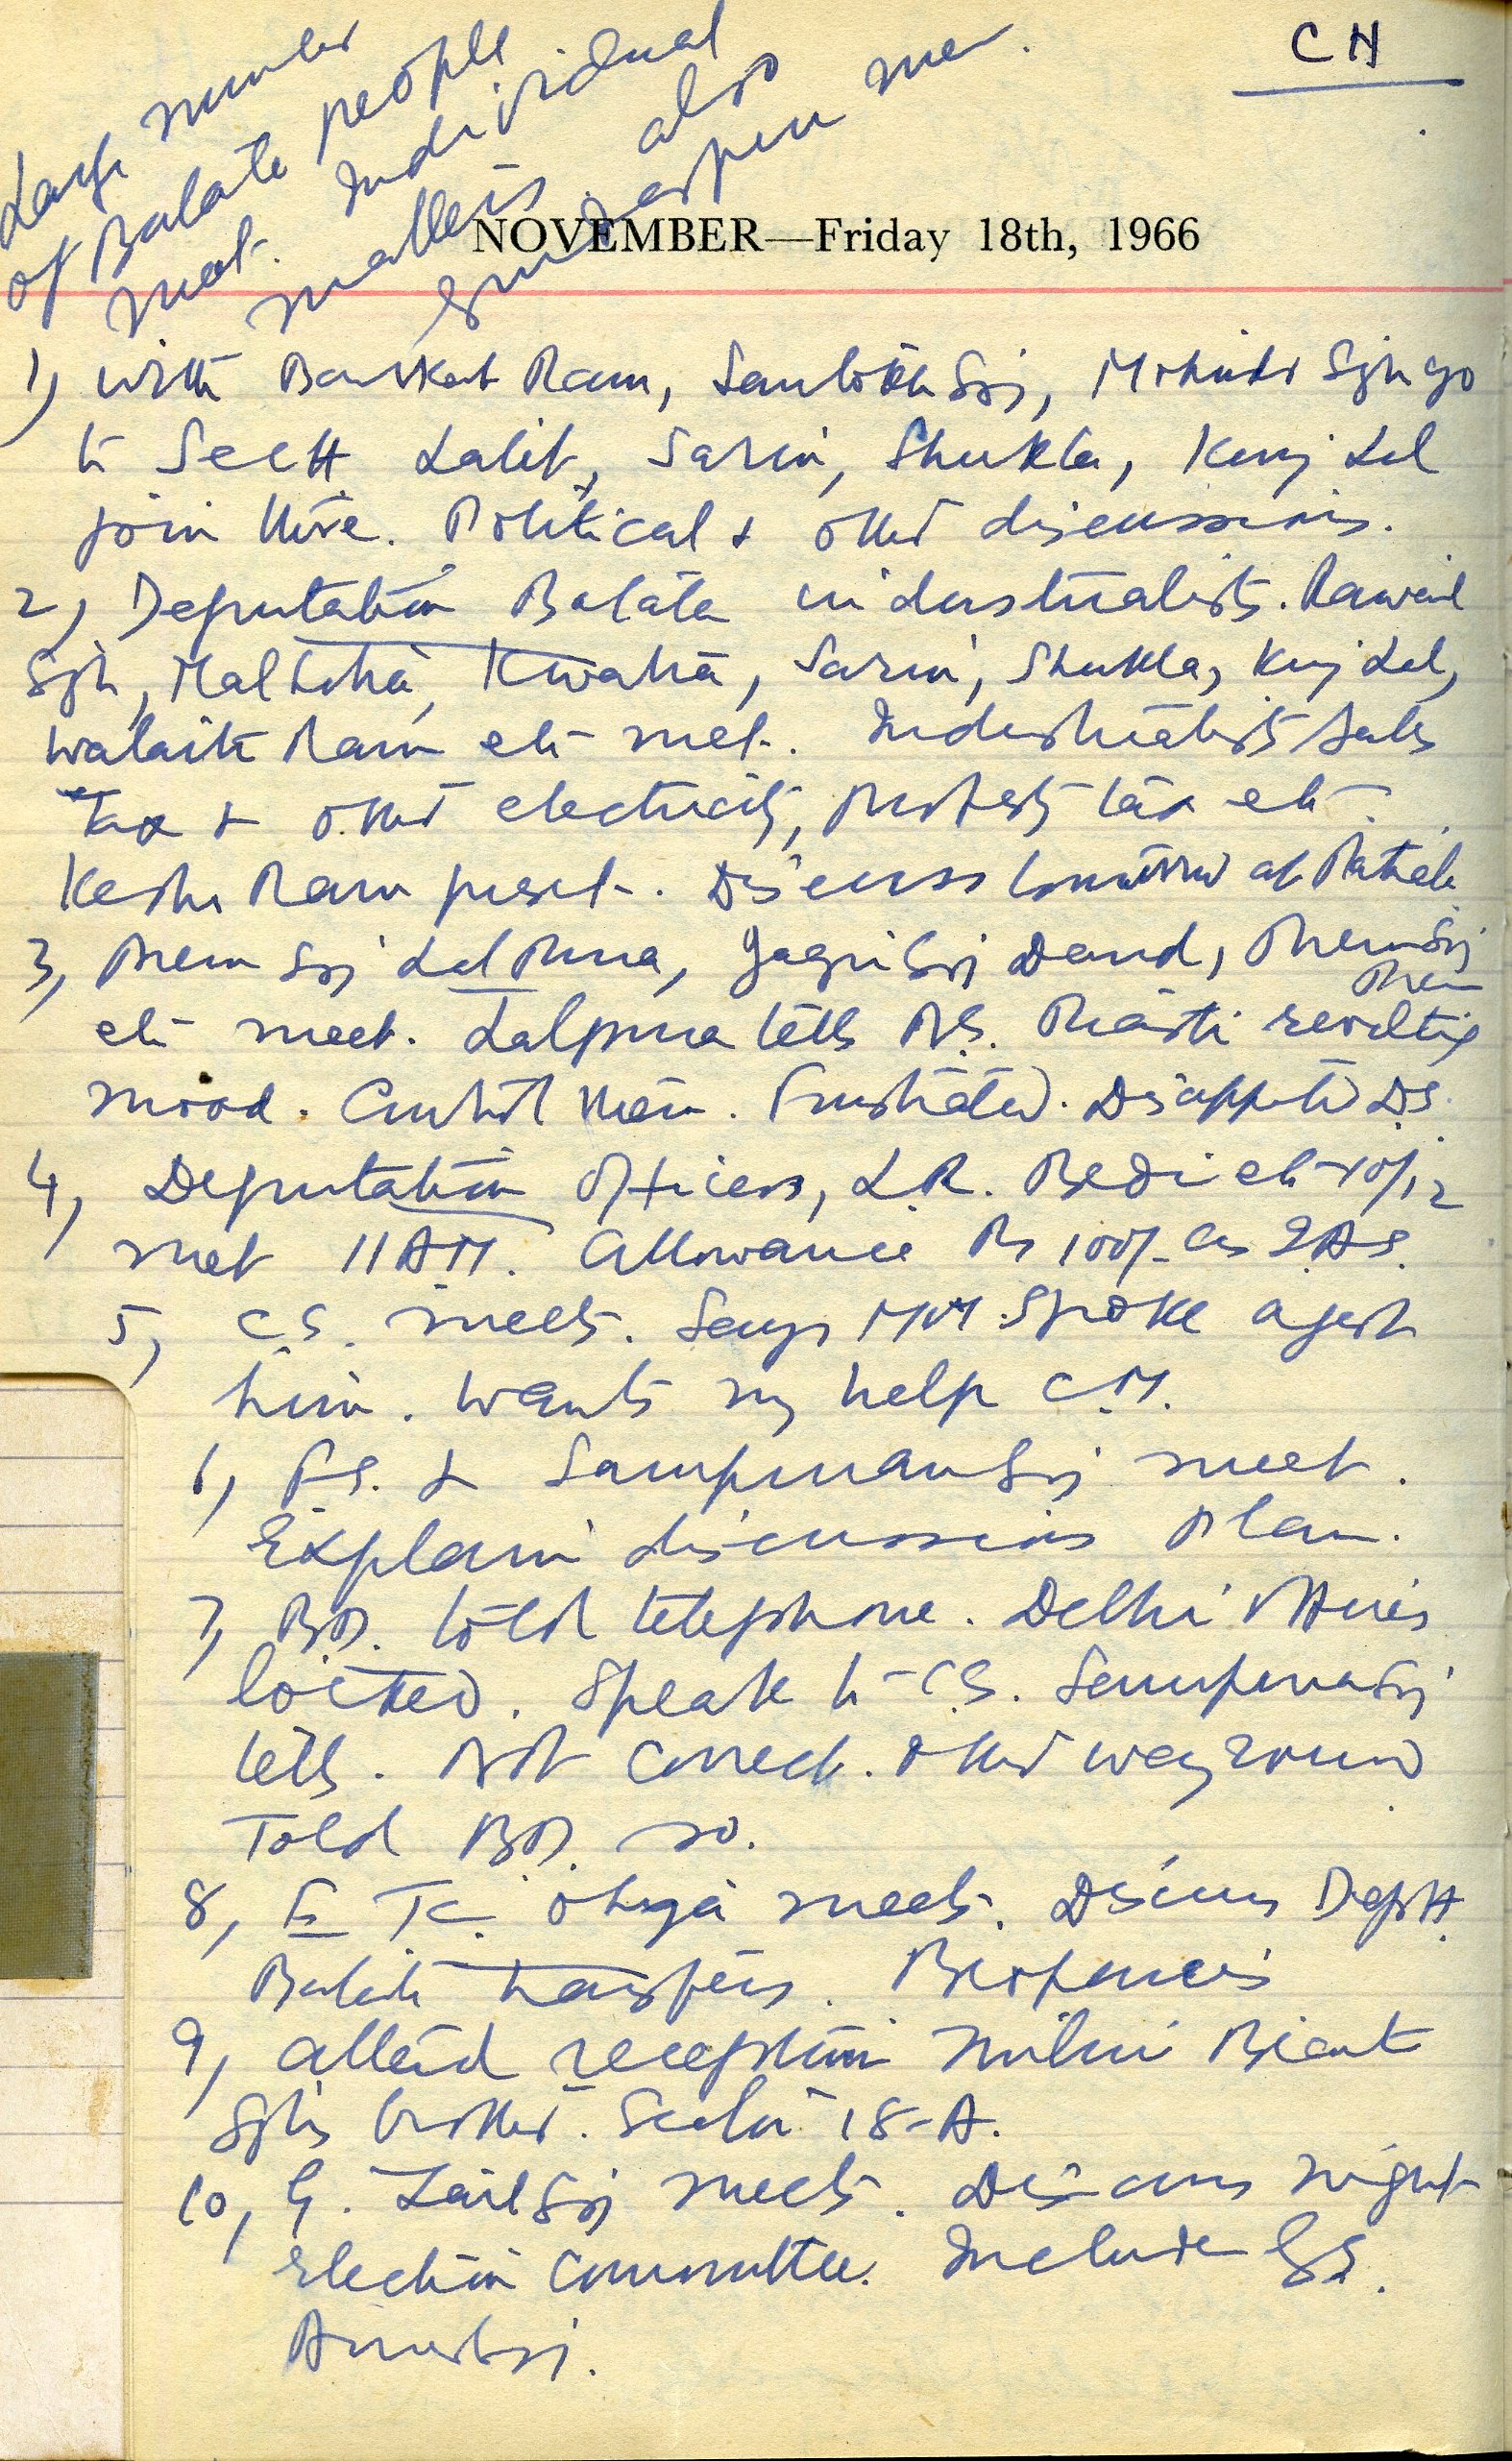 CH
Large number
of Batala people
met. Individual
matters also
NOVEMBER—Friday 18th, 1966
1) With Barkat Ram, Santokh Sgj, Mohinder Sgh go
to Sectt Lalit, Sarin, Shukla, Kunj Lal
join there. Political & other discussions.
2) Deputation Batala industrialists. Rawail
Sgh, Malhotra, Kwatra, Sarin, Shukla, Kunj Lal,
Walaiti Ram etc met. Industrialists Sales
Tax & other electricity, Property tax etc.
Ram present. Discuss tomorrow at Patiala
3, Prem Sgj Lalpura, Sgj Dand, Prem Sgj Prem
etc meet. Lalpura tells P.S. revolting
mood. Control them. Frustrated. Disappointed D.S.
4, Deputation Officers, L.R. Bedi etc 10/12
met 11 AM. Allowance Rs 100/- as I.A.S.
5, C.S. meets. Says spoke agest
him. Wants my help C.M.
6, F.S. & Sampuran Sgj meet.
Explain discussions Plan.
7, B.D. told telephone. Delhi
locked. Speak to C.S. Sampuran Sgj
tells. Not correct. Other way round
Told B.D. so.
8, E.T.C. Ohja meets. Discuss Deptt
Batala transfers.
9, Attend reception Milni Beant
Sghs brother. Sector 18-A.
10, G. Zail Sgj meets. Discuss night
Election Committee. Include G.S.
Amar Sgj.